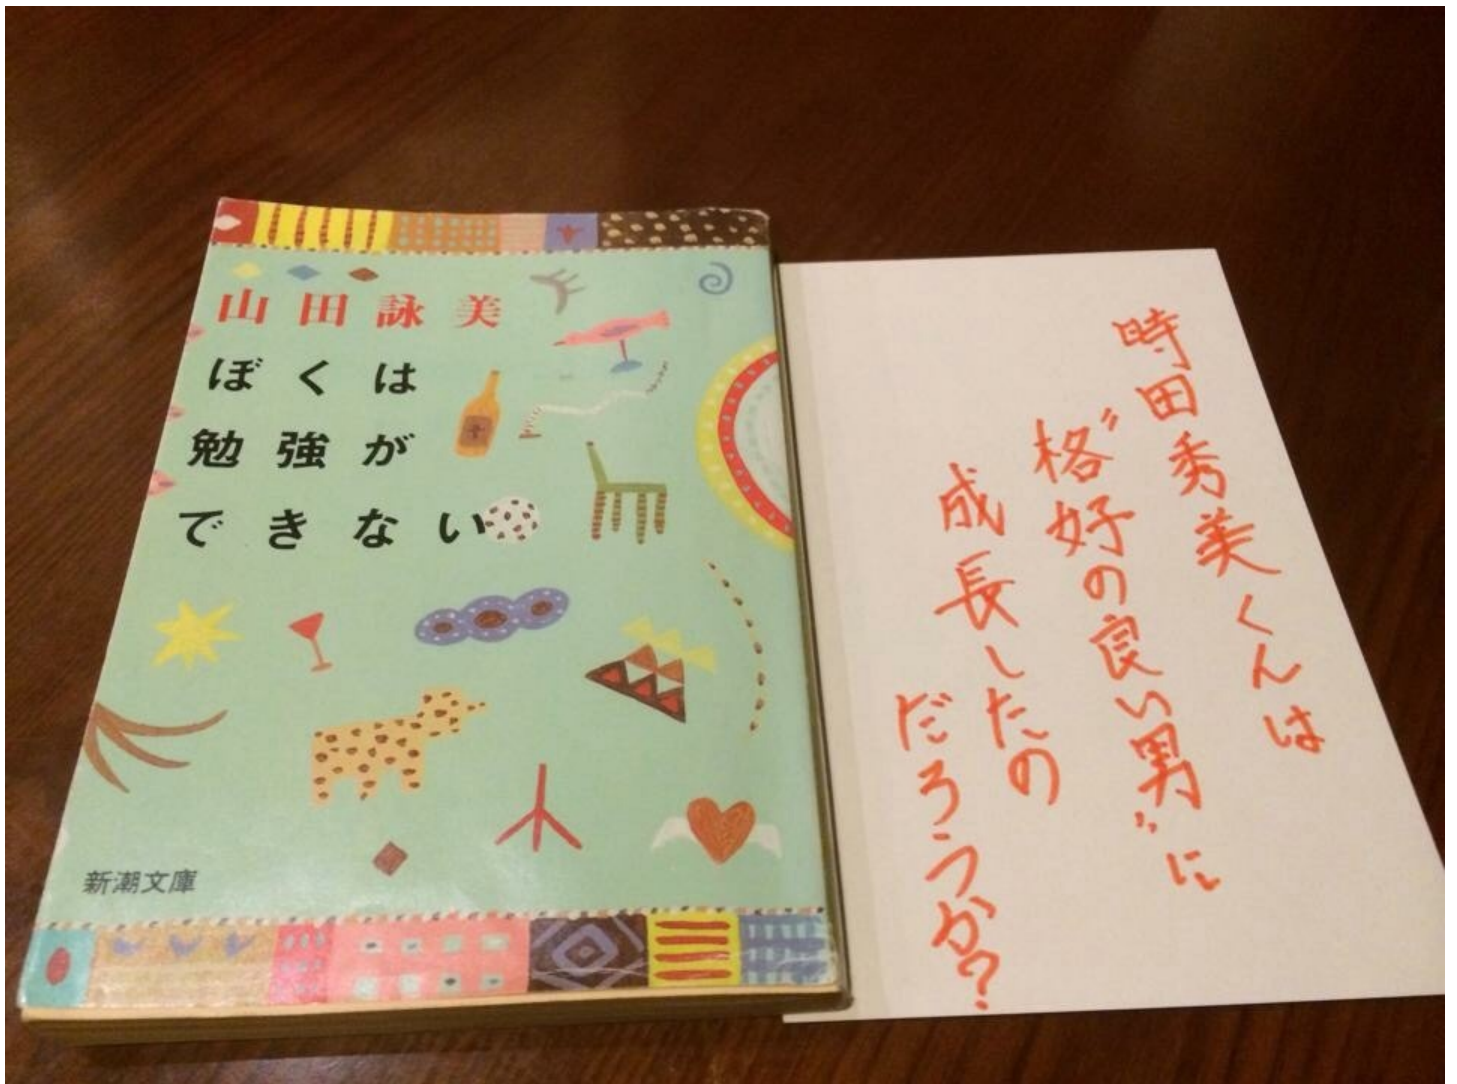 山田詠美
ぼくは
勉強が
できない
新潮文庫
時田秀美くんは
〝格好の良い男〟に
成長したの
だろうか?